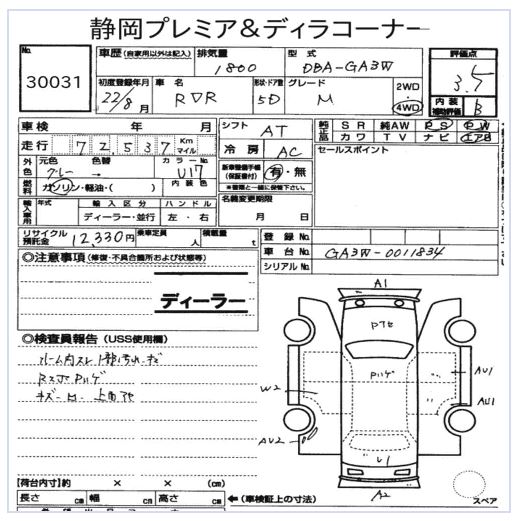 静岡プレミア＆ディラコーナー
No.
30031
車歴 (自家用以外は記入)
排気量
1800
型式
DBA-GA3W
評価点
3.5
初度登録年月
22/8月
車名
RVR
形状・ドア数
5D
グレード
M
2WD
・
4WD
内装
補助評価
B
車検 年 月
シフト
AT
純正品
SR 純AW PS PW
カワ TV ナビ エアB
走行 72,537 Km マイル
冷房
AC
セールスポイント
外色
元色 色替 カラーNo.
グレー → U17
新車整備手帳
(保証書付)
有・無
※書類と一緒に保管下さい。
燃料
ガソリン・軽油・( )
内装色
名義変更期限
月 日
輸入車用
年式
輸入区分
ハンドル
ディーラー・並行
左・右
リサイクル
預託金
12,330円
乗車定員
人
積載量
t
登録No.
車台No.
GA3W-0011834
シリアルNo.
◎注意事項 (修復・不具合箇所および状態等)
ディーラー
◎検査員報告 (USS使用欄)
A1
AU1
AU1
W2
AU2
A2
スペア
【荷台内寸】約 × × (cm)
長さ cm 幅 cm 高さ cm
←(車検証上の寸法)